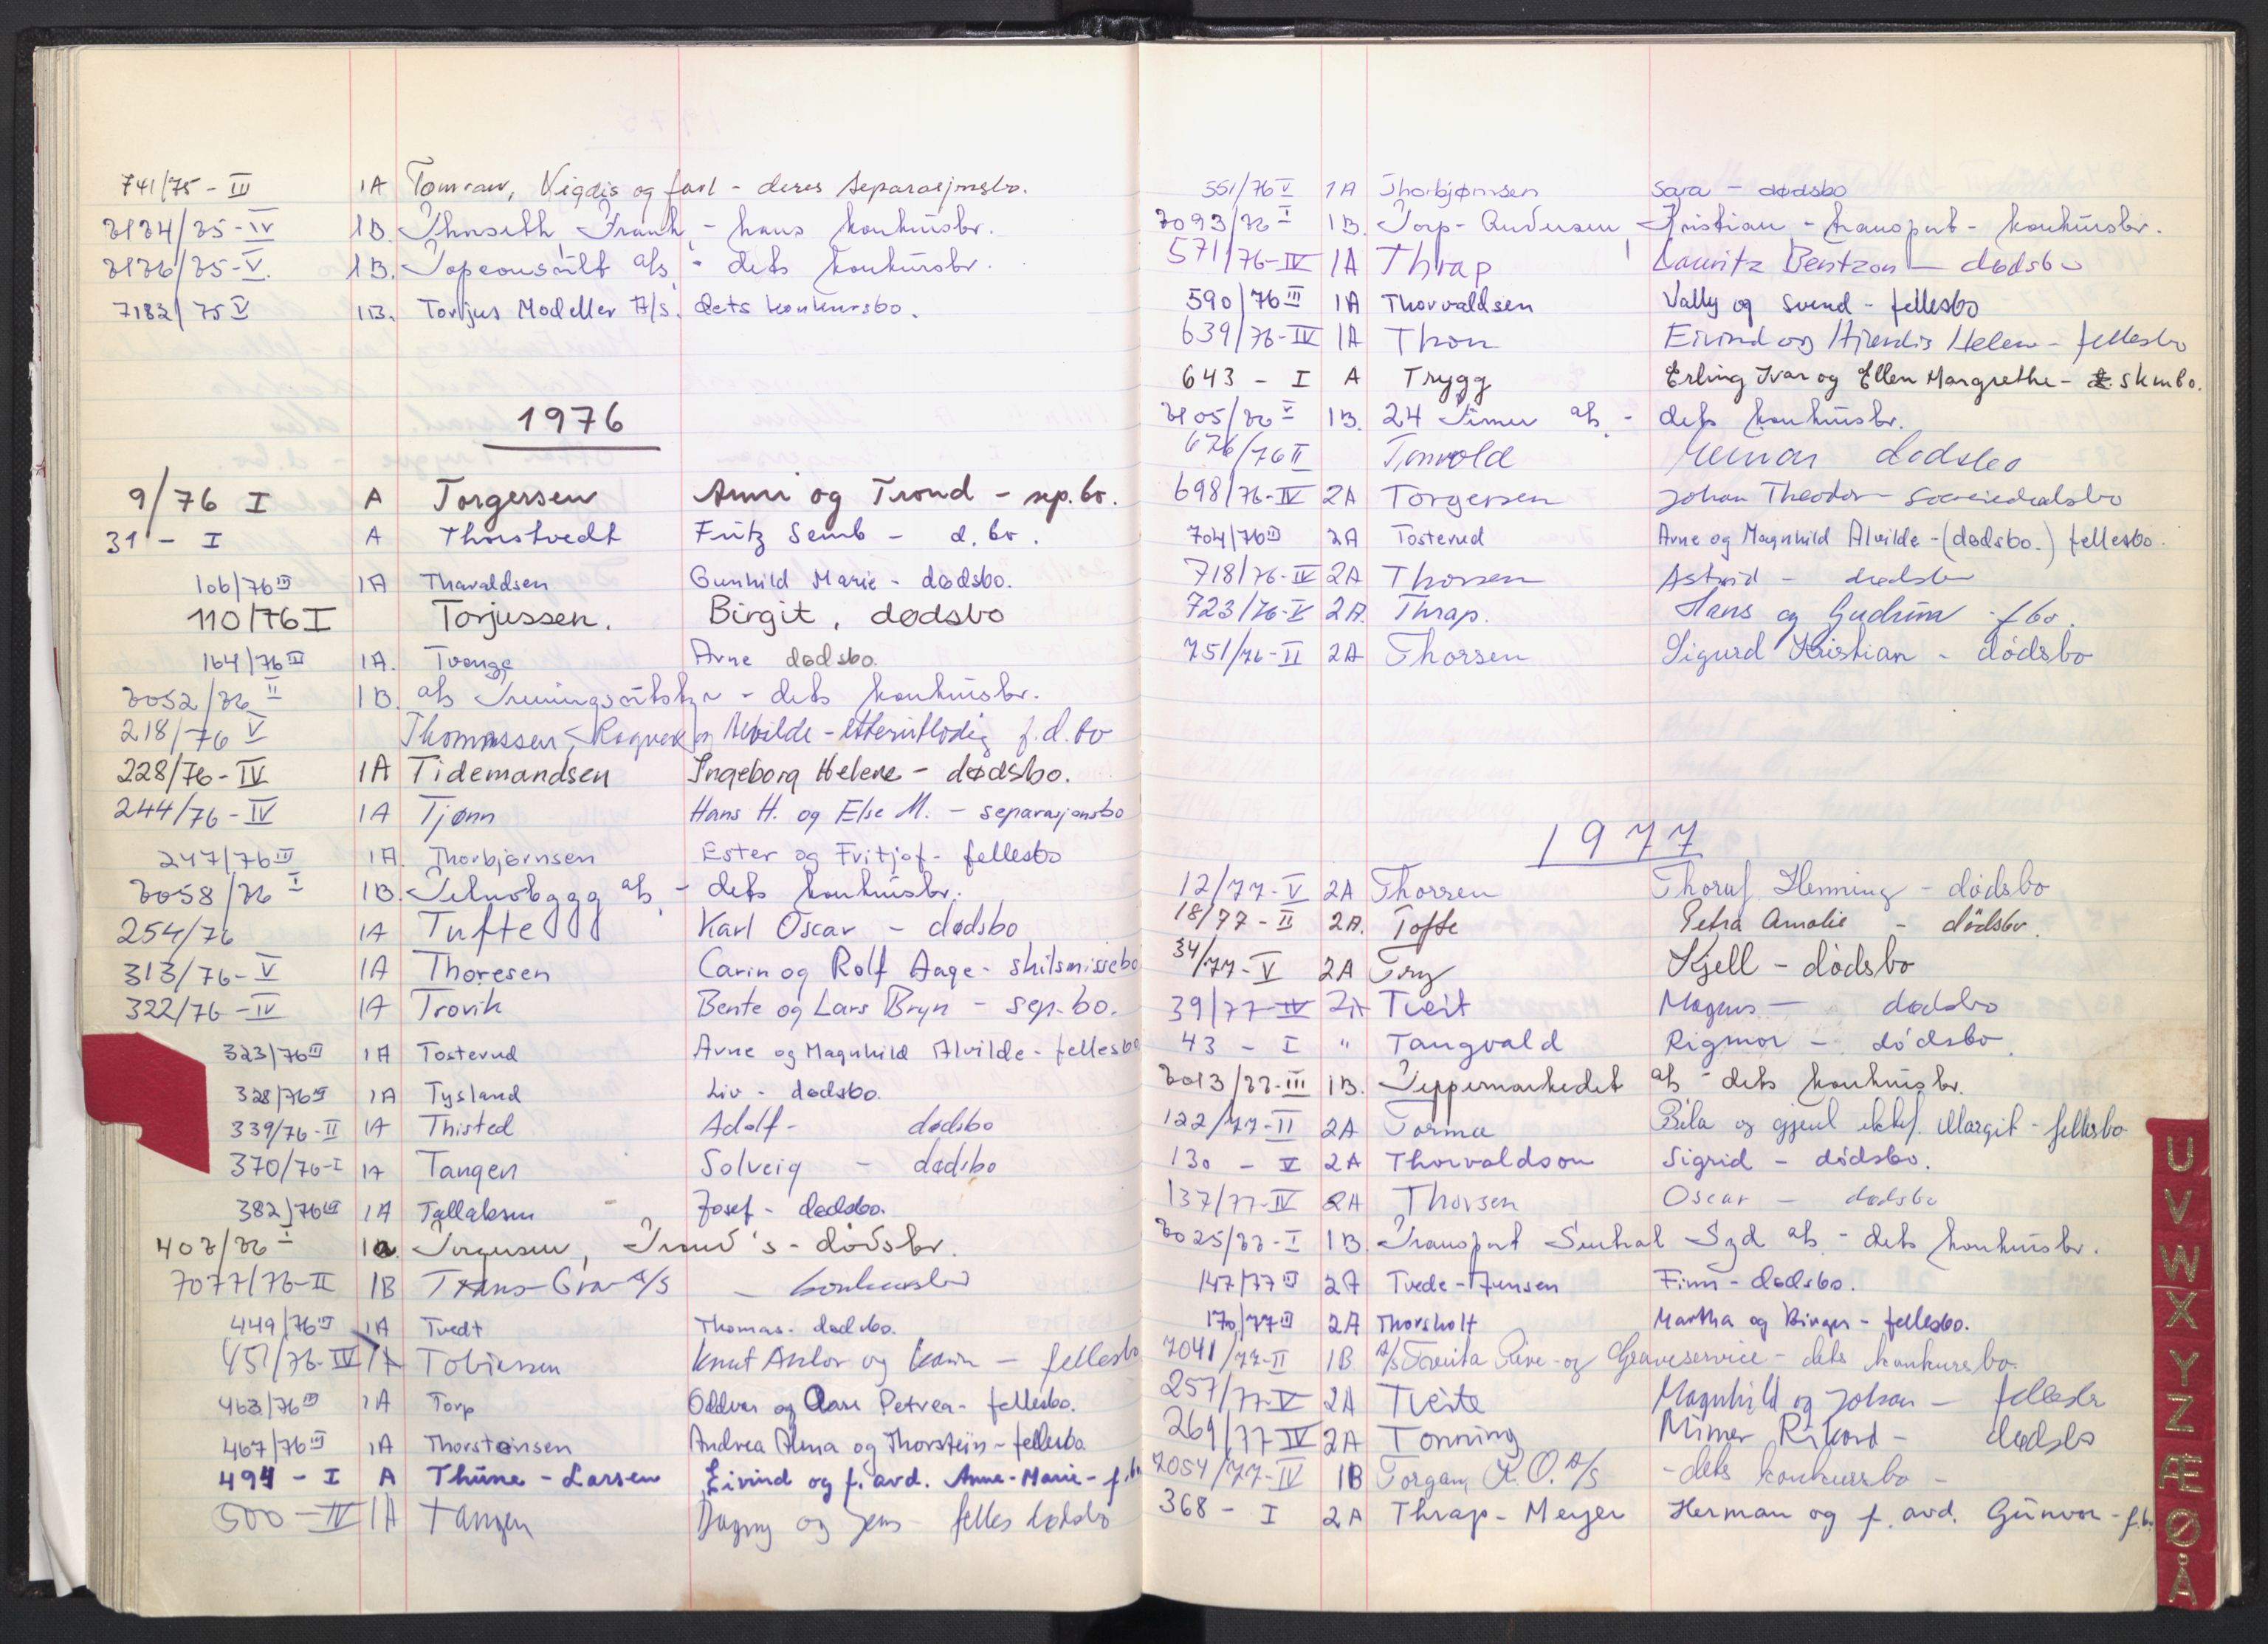 741/75 - III 1A Tomran, Vigdis og Earl - deres separasjonsbo.
7174/75 - IV 1B. Thorseth, Frank - hans konkursbo.
7176/75 - V. 1B. Topconsult a/s - dets konkursbo.
7182/75 V 1B. Torjus Modeller A/S. dets konkursbo.
1976
9/76 I A Torgersen Anni og Trond - sep.bo.
31 - I A Thorstvedt Fritz Semb - d.bo.
106/76 III 1A Tharaldsen Gunhild Marie - dødsbo.
110/76 I Torjussen. Birgit, dødsbo
164/76 III 1A. Tvenge Arne dødsbo.
7052/76 II 1B a/s Treningsutstyr - dets konkursbo.
218/76 V Thomassen, Ragnar og Alvilde - etterutlodig f.d.bo
228/76 - IV 1A Tidemandsen Ingeborg Helene - dødsbo.
244/76 - IV 1A Tjønn Hans H. og Else M. - separasjonsbo
247/76 III 1A. Thorbjørnsen Ester og Fritjof - fellesbo
7058/76 I 1B. Teknobygg a/s - dets konkursbo.
254/76 1A Tufte Karl Oscar - dødsbo
313/76 - V 1A Thoresen Carin og Rolf Aage - skilsmissebo
322/76 - IV 1A Trovik Bente og Lars Bryn - sep.bo.
323/76 III 1A Tosterud Arne og Magnhild Alvilde - fellesbo
328/76 III 1A Tysland Liv - dødsbo.
339/76 - II 1A Thisted Adolf - dødsbo
370/76 - I 1A Tangen Solveig - dødsbo
382/76 III 1A Tallaksen Josef - dødsbo.
407/76 I 1a. Torgersen, Trond's - dødsbo.
7077/76 - II 1B Trans-Gra A/S - konkursbo
449/76 III 1A Tvedt Thomas - dødsbo.
451/76 - IV 1A Tobiessen Knut Anker og Karin - fellesbo
463/76 III 1A Torp Oddvar og Aase Petrea - fellesbo.
467/76 III 1A Thorsteinsen Andrea Alma og Thorstein - fellesbo.
494 - I A Thüne - Larsen Eivind og f. avd. Anne-Marie - f.bo
500 - IV 1A Tangen Dagny og Jens - felles dødsbo
551/76 V 1A Thorbjørnsen Sara - dødsbo
7093/76 I 1B. Torp-Andersen, Kristian - transport - konkursbo.
571/76 - IV 1A Thrap Lauritz Bentzon - dødsbo
590/76 III 1A Thorvaldsen Vally og Svend - fellesbo
639/76 - IV 1A Thon Eivind og Hjørdis Helene - fellesbo
643 - I A Trygg Erling Ivar og Ellen Margrethe - skmbo.
7105/76 V 1B. 24 Timer a/s - dets konkursbo.
676/76 II Tonvold Reinar dødsbo
698/76 - IV 2A Torgersen Johan Theodor - særeiedødsbo
704/76 III 2A Tosterud Arne og Magnhild Alvilde - (dødsbo.) fellesbo.
718/76 - IV 2A Thorsen Astrid - dødsbo
723/76 - V 2A. Thrap. Hans og Gudrun - fbo.
751/76 - II 2A Thorsen Sigurd Kristian - dødsbo
1977
12/77 - V 2A Thorsen Thoruf Henning - dødsbo
18/77 - II 2A. Tofte Petra Amalie - dødsbo.
34/77 - V 2A Try Kjell - dødsbo
39/77 - IV 2A Tveit Magnus - dødsbo
43 - I " Tangvald Rigmor - dødsbo.
7013/77 - III 1B. Teppemarkedet a/s - dets konkursbo.
122/77 - II 2A Torma Bela og gjenl. ektef. Margit - fellesbo
130 - V 2A Thorvaldson Sigrid - dødsbo.
137/77 - IV 2A Thorsen Oscar - dødsbo
7025/77 - I 1B. Transport Sentral Syd a/s - dets konkursbo.
147/77 III 2A Tvede-Jensen Finn - dødsbo.
170/77 III 2A Thorsholt Martha og Birger - fellesbo.
7041/77 - II 1B A/S Toreita Rive- og Graveservice - dets konkursbo.
257/77 - V 2A Tveite Magnhild og Johan - fellesbo
269/77 IV 2A Tonning Mimer Rikard - dødsbo
7054/77 - IV 1B Torgan, K.O. A/S - dets konkursbo -
368 - I 2A Thrap-Meyer Herman og f. avd. Gunvor - f.b.
U
V
W
X
Y
Z
Æ
Ø
Å